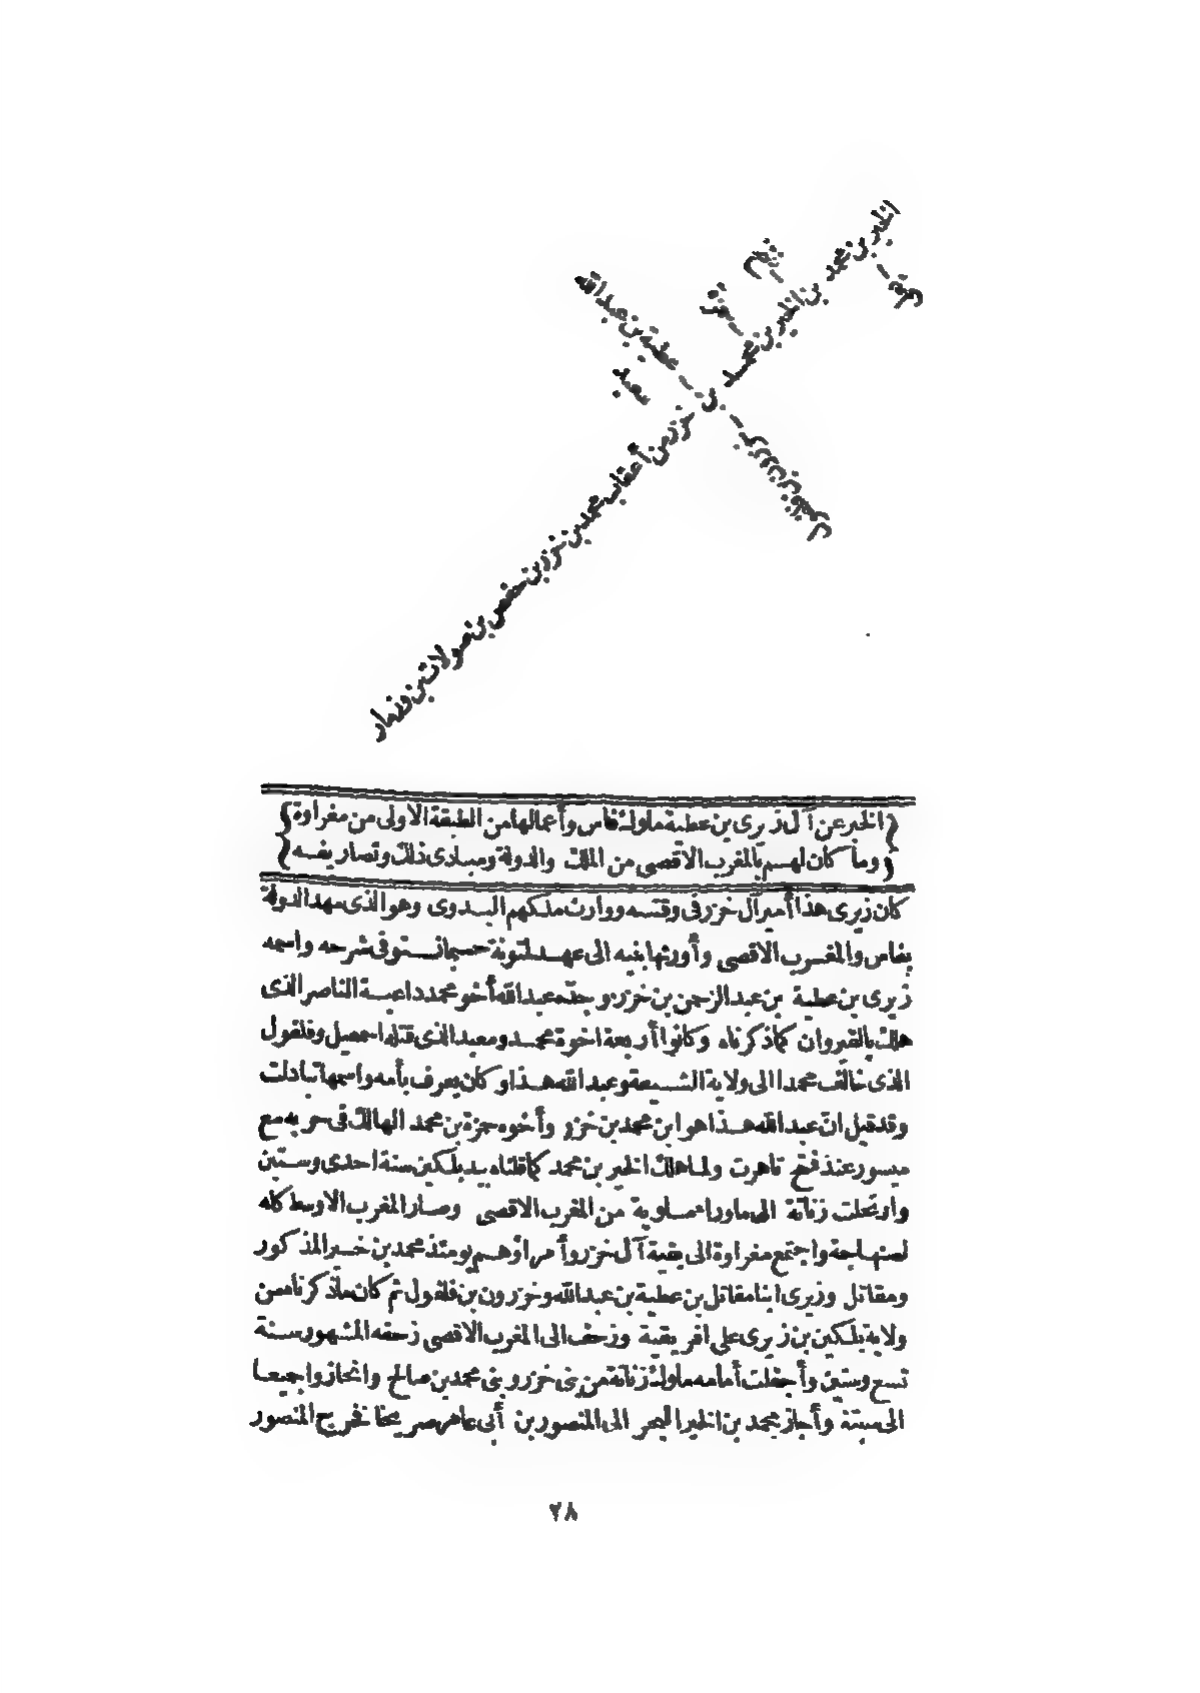 الخير بن محمد بن الخير بن محمد بن خزر من أعقاب محمد بن خزر بن حفص بن صولات بن وزمار
عطية بن عبد الله
معبد
{الخبر عن آل زيرى بن عطية ملوك فاس وأعمالها من الطبقة الاولى من مغراوة}
{وما كان لهم بالمغرب الاقصى من الملك والدولة ومبادى ذلك وتصاريفه}
كان زيرى هذا أمير آل خزر فى وقته ووارث ملكهم البدوى وهو الذى مهد الدولة
بفاس والمغرب الاقصى وأورثها بنيه الى عهد لمتونة حسبما نستوفى شرحه واسمه
زيرى بن عطية بن عبد الرحمن بن خزر وجدّه عبد الله أخو محمد داعية الناصر الذى
هلك بالقيروان كما ذكرناه وكانوا أربعة اخوة محمد ومعبد الذى قتله اسمعيل وفلفول
الذى خالف محمدا الى ولاية الشيعة وعبد الله هذا وكان يعرف بأمه واسمها تبادلت
وقد قيل انّ عبد الله هذا هو ابن محمد بن خزر وأخوه حمزة بن محمد الهالك فى حربه مع
ميسور عند فتح تاهرت ولما هلك الخير بن محمد كما قلناه بيد بلكين سنة احدى وستين
وارتحلت زناتة الى ماوراء ملوية من المغرب الاقصى وصار المغرب الاوسط كله
لصنهاجة واجتمع مغراوة الى بقية آل خزر وأمراؤهم يومئذ محمد بن خير المذكور
ومقاتل وزيرى ابنا مقاتل بن عطية بن عبد الله وخزرون بن فلفول ثم كان ما ذكرناه من
ولاية بلكين بن زيرى على افريقية وزحف الى المغرب الاقصى زحفه المشهور سنة
تسع وستين وأجفلت أمامه ملوك زناتة من بنى خزر وبنى محمد بن صالح وانحازوا جميعا
الى سبتة وأجاز محمد بن الخير البحر الى المنصور بن أبى عامر صريخا فخرج المنصور
٢٨